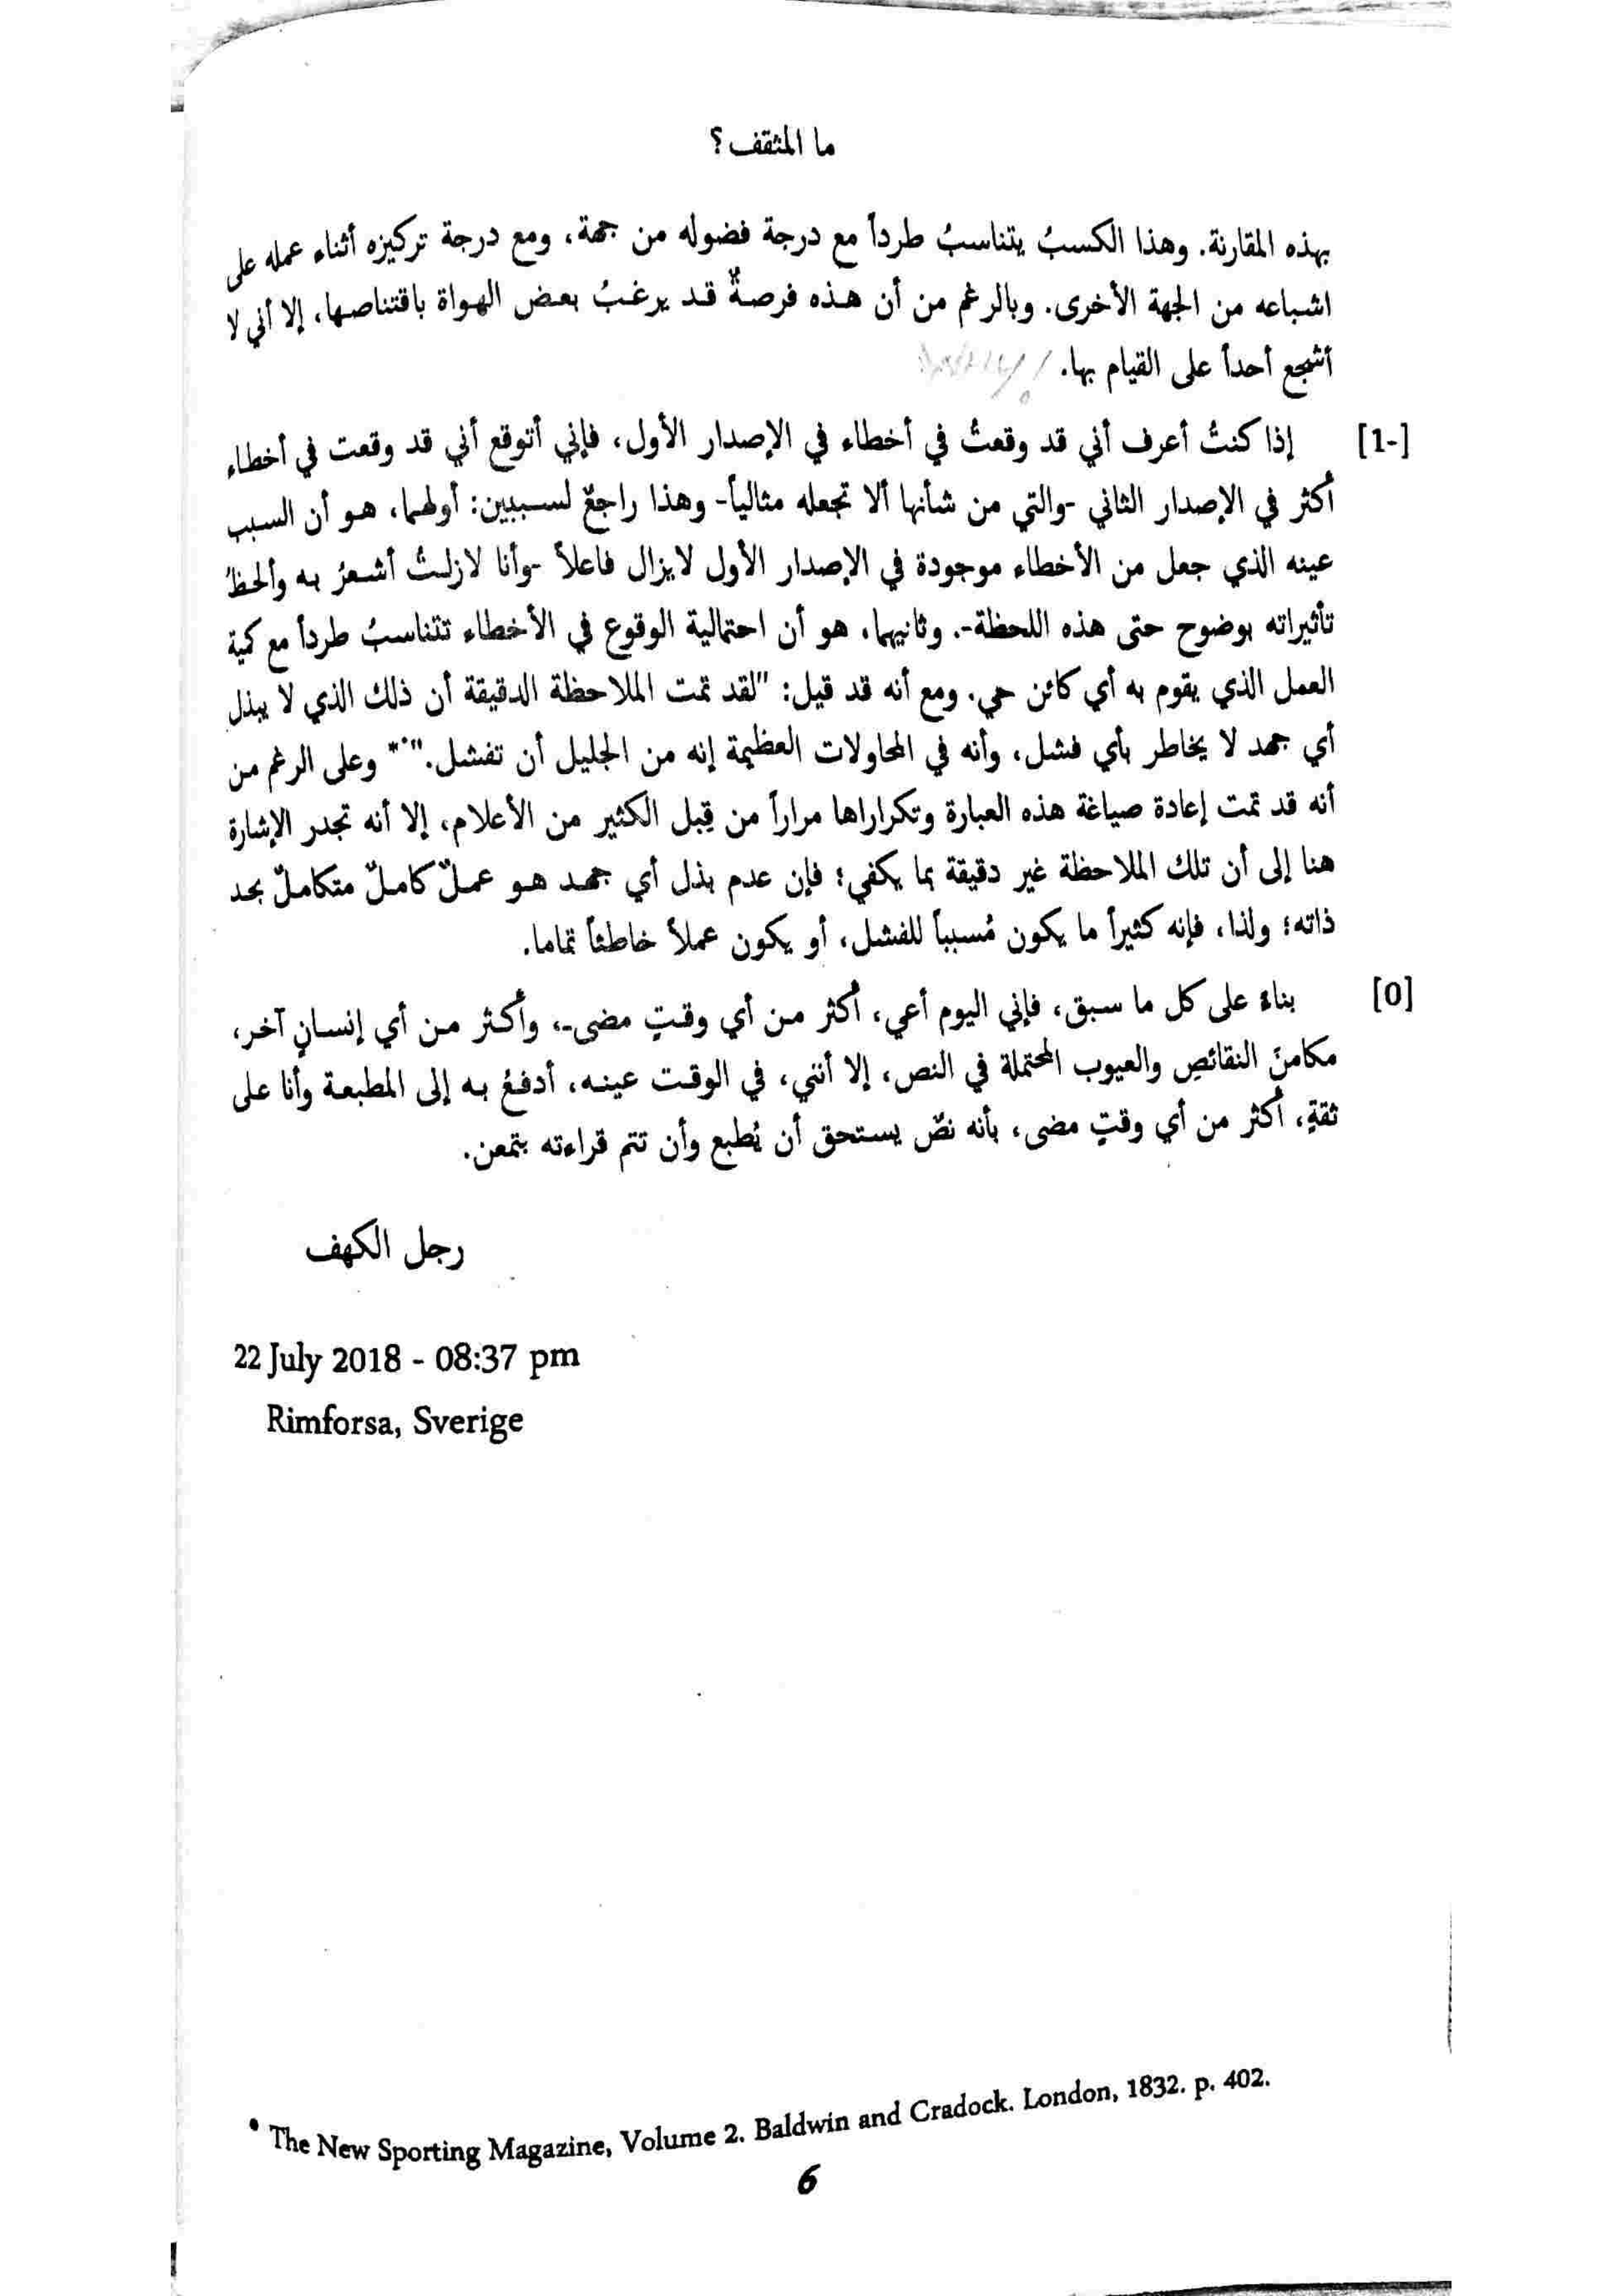 ما المثقف؟
بهذه المقارنة. وهذا الكسبُ يتناسبُ طرداً مع درجة فضوله من جهة، ومع درجة تركيزه أثناء عمله على
اشباعه من الجهة الأخرى. وبالرغم من أن هذه فرصةٌ قد يرغبُ بعض الهواة باقتناصها، إلا أني لا
أشجع أحداً على القيام بها. WHY?!
[-1] إذا كنتُ أعرف أني قد وقعتُ في أخطاء في الإصدار الأول، فإني أتوقع أني قد وقعت في أخطاء
أكثر في الإصدار الثاني -والتي من شأنها ألا تجعله مثالياً- وهذا راجعٌ لسببين: أولهما، هو أن السبب
عينه الذي جعل من الأخطاء موجودة في الإصدار الأول لايزال فاعلاً -وأنا لازلتُ أشعرُ به وألحظُ
تأثيراته بوضوح حتى هذه اللحظة-. وثانيهما، هو أن احتمالية الوقوع في الأخطاء تتناسبُ طرداً مع كمية
العمل الذي يقوم به أي كائن حي. ومع أنه قد قيل: "لقد تمت الملاحظة الدقيقة أن ذلك الذي لا يبذل
أي جهد لا يخاطر بأي فشل، وأنه في المحاولات العظيمة إنه من الجليل أن تفشل."* وعلى الرغم من
أنه قد تمت إعادة صياغة هذه العبارة وتكراراها مراراً من قِبل الكثير من الأعلام، إلا أنه تجدر الإشارة
هنا إلى أن تلك الملاحظة غير دقيقة بما يكفي؛ فإن عدم بذل أي جهد هو عملٌ كاملٌ متكاملٌ بحد
ذاته؛ ولذا، فإنه كثيراً ما يكون مُسبباً للفشل، أو يكون عملاً خاطئاً تماما.
[0] بناءً على كل ما سبق، فإني اليوم أعي، أكثر من أي وقتٍ مضى-، وأكثر من أي إنسانٍ آخر،
مكامنَ النقائصِ والعيوب المحتملة في النص، إلا أنني، في الوقت عينه، أدفعُ به إلى المطبعة وأنا على
ثقةٍ، أكثر من أي وقتٍ مضى، بأنه نصٌ يستحق أن يُطبع وأن تتم قراءته بتمعن.
رجل الكهف
22 July 2018 - 08:37 pm
Rimforsa, Sverige
* The New Sporting Magazine, Volume 2. Baldwin and Cradock. London, 1832. p. 402.
6